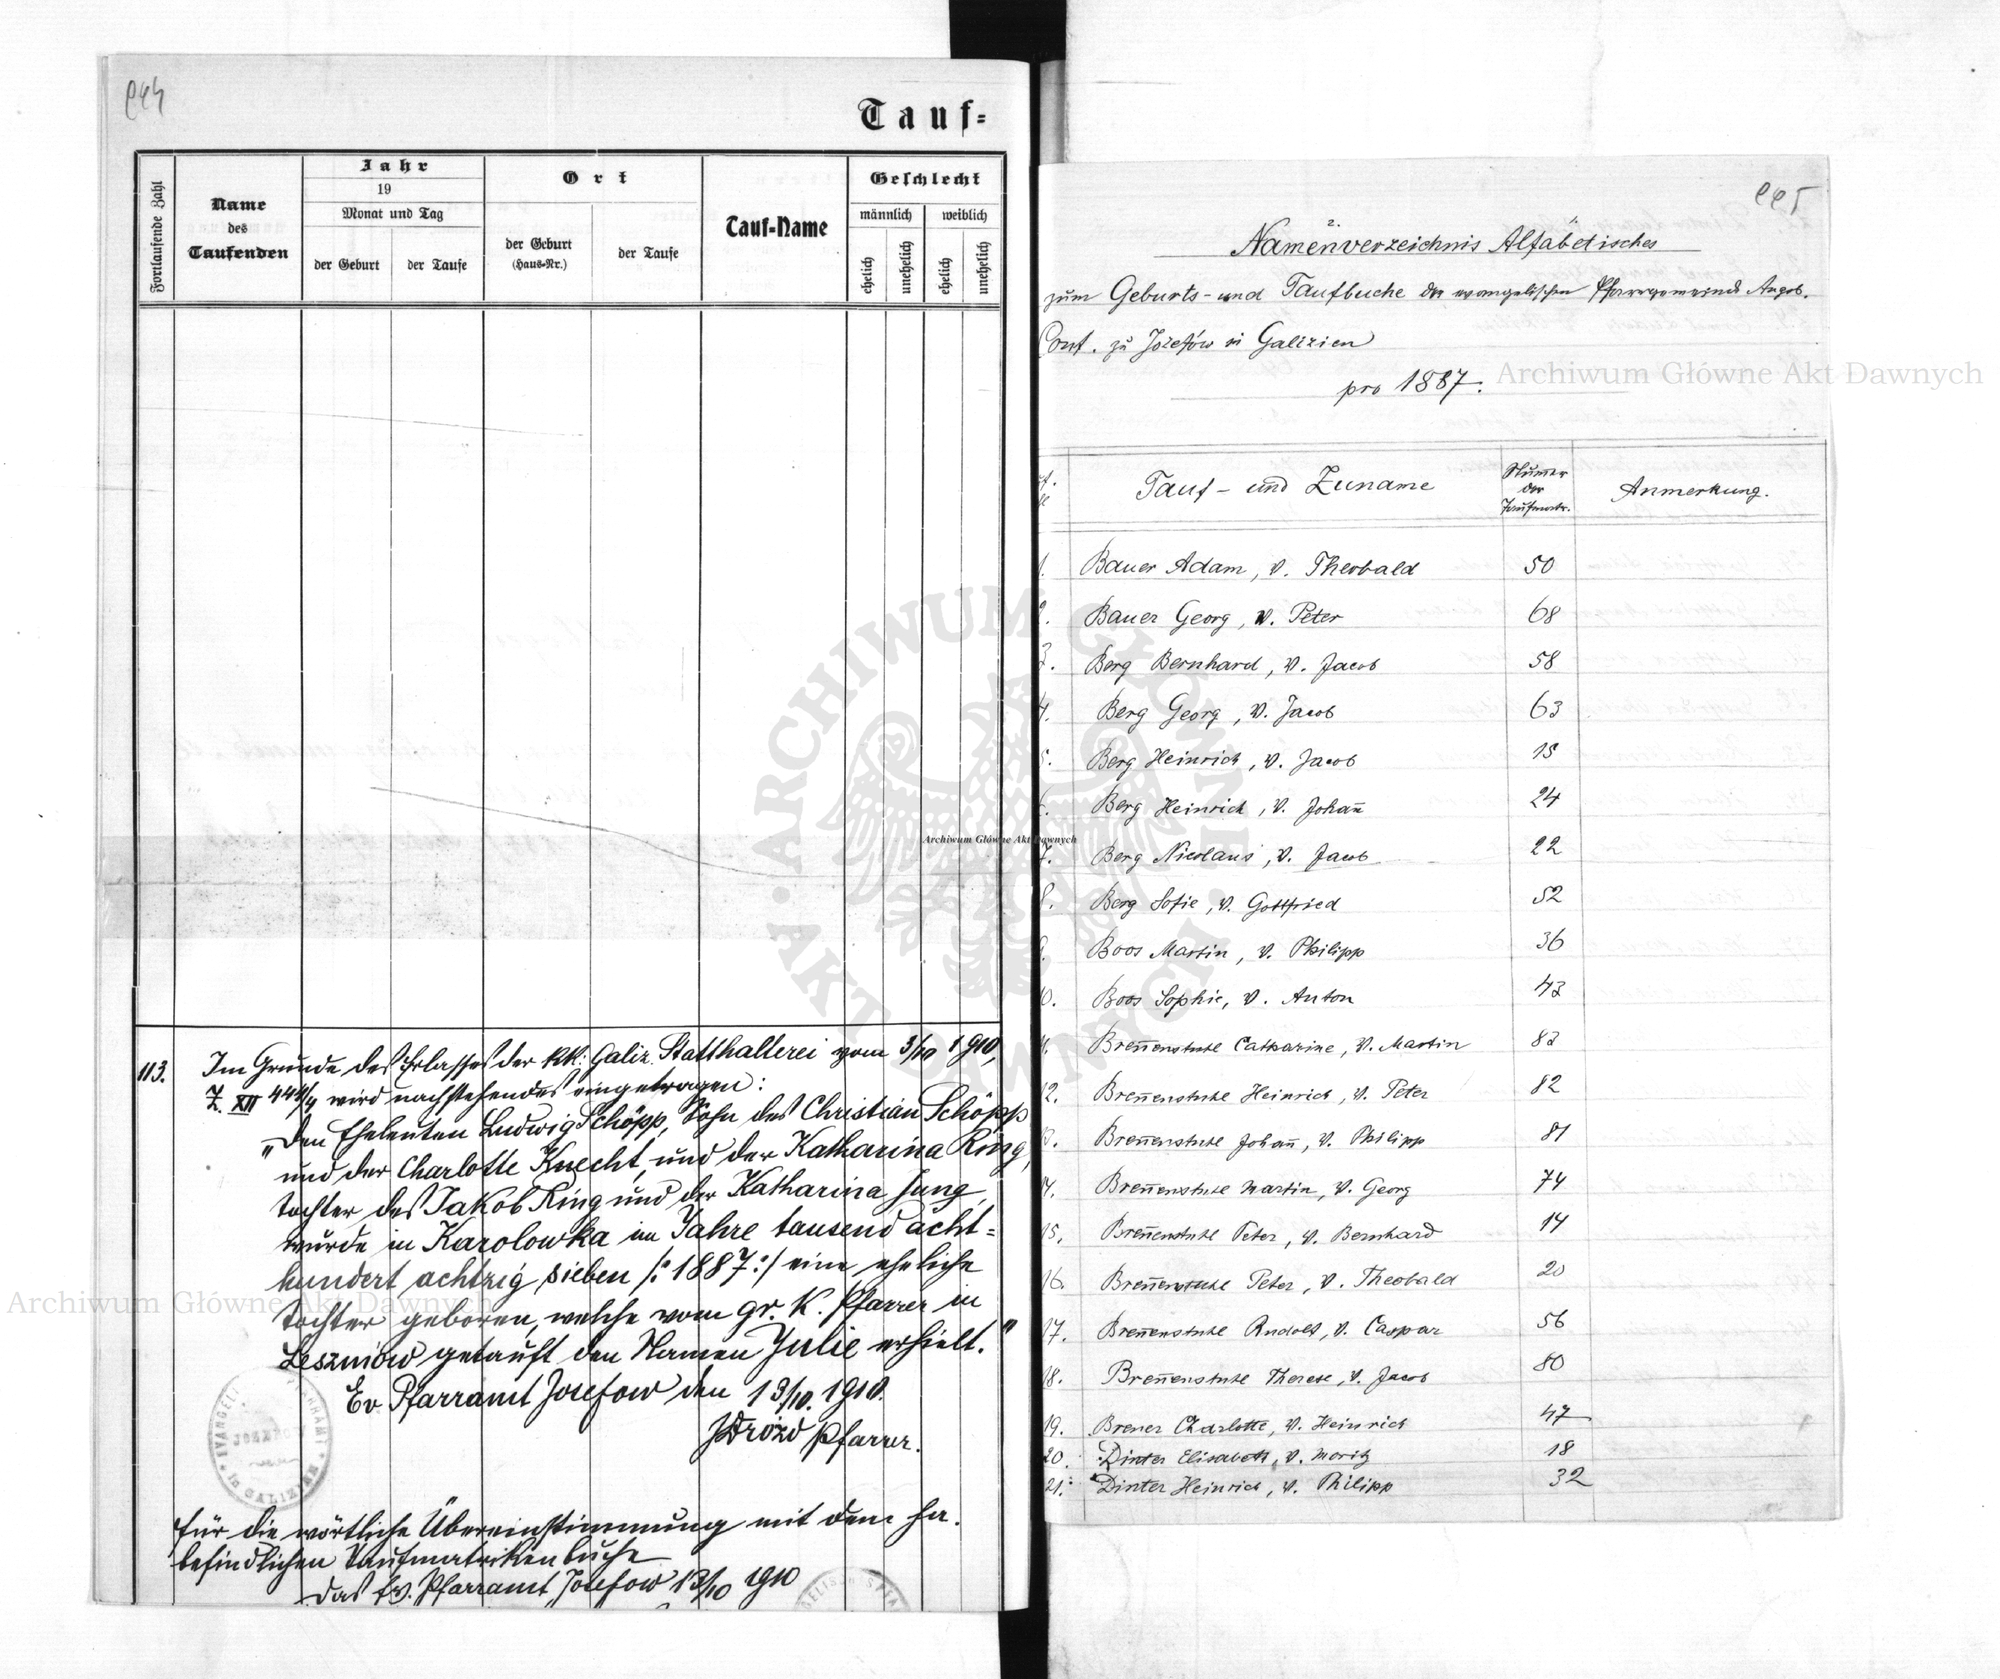 Tauf=
Fortlaufende Zahl
Name
des
Taufenden
Jahr
19
Monat und Tag
der Geburt
der Taufe
Ort
der Geburt
(Haus-Nr.)
der Taufe
Tauf-Name
Geschlecht
männlich
weiblich
ehelich
unehelich
ehelich
unehelich
113. Im Grunde des Erlasses der kk. Galiz. Statthalterei vom 3/10 1910,
Z. XII 4441/4 wird nachstehendes eingetragen:
„Den Eheleuten Ludwig Schöpp, Sohn des Christian Schöpp
und der Charlotte Knecht, und der Katharina Ring,
Tochter des Jakob Ring und der Katharina Jung,
wurde in Karolowka im Jahre tausend acht=
hundert achtzig sieben /:1887:/ eine eheliche
Tochter geboren, welche vom gr. K. Pfarrer in
Leszniow getauft den Namen Julie erhielt."
Ev Pfarramt Josefow den 13/10. 1910.
JDrozd Pfarrer.
für die wörtliche Übereinstimmung mit dem ha.
befindlichen Taufmatrikenbuche
Das Ev. Pfarramt Josefow 13/10 1910
Namenverzeichnis Alfabetisches
zum Geburts- und Taufbuche der evangelischen Pfarrgemeinde Augsb.
Conf. zu Józefów in Galizien
pro 1887.
Tauf- und Zuname
Numer
der
Taufmatr.
Anmerkung.
1. Bauer Adam, v. Theobald 50
2. Bauer Georg, v. Peter 68
3. Berg Bernhard, v. Jacob 58
4. Berg Georg, v. Jacob 63
5. Berg Heinrich, v. Jacob 15
6. Berg Heinrich, v. Johañ 24
7. Berg Nicolaus, v. Jacob 22
8. Berg Sofie, v. Gottfried 52
9. Boos Martin, v. Philipp 36
10. Boos Sophie, v. Anton 43
11. Breñenstuhl Catharine, v. Martin 83
12. Breñenstuhl Heinrich, v. Peter 82
13. Breñenstuhl Johañ, v. Philipp 81
14. Breñenstuhl Martin, v. Georg 74
15. Breñenstuhl Peter, v. Bernhard 14
16. Breñenstuhl Peter, v. Theobald 20
17. Breñenstuhl Rudolf, v. Caspar 56
18. Breñenstuhl Therese, v. Jacob 80
19. Brener Charlotte, v. Heinrich 47
20. Dinter Elisabeth, v. Moritz 18
21. Dinter Heinrich, v. Philipp 32
Archiwum Główne Akt Dawnych
Archiwum Główne Akt Dawnych
Archiwum Główne Akt Dawnych
ARCHIWUM GŁÓWNE AKT DAWNYCH